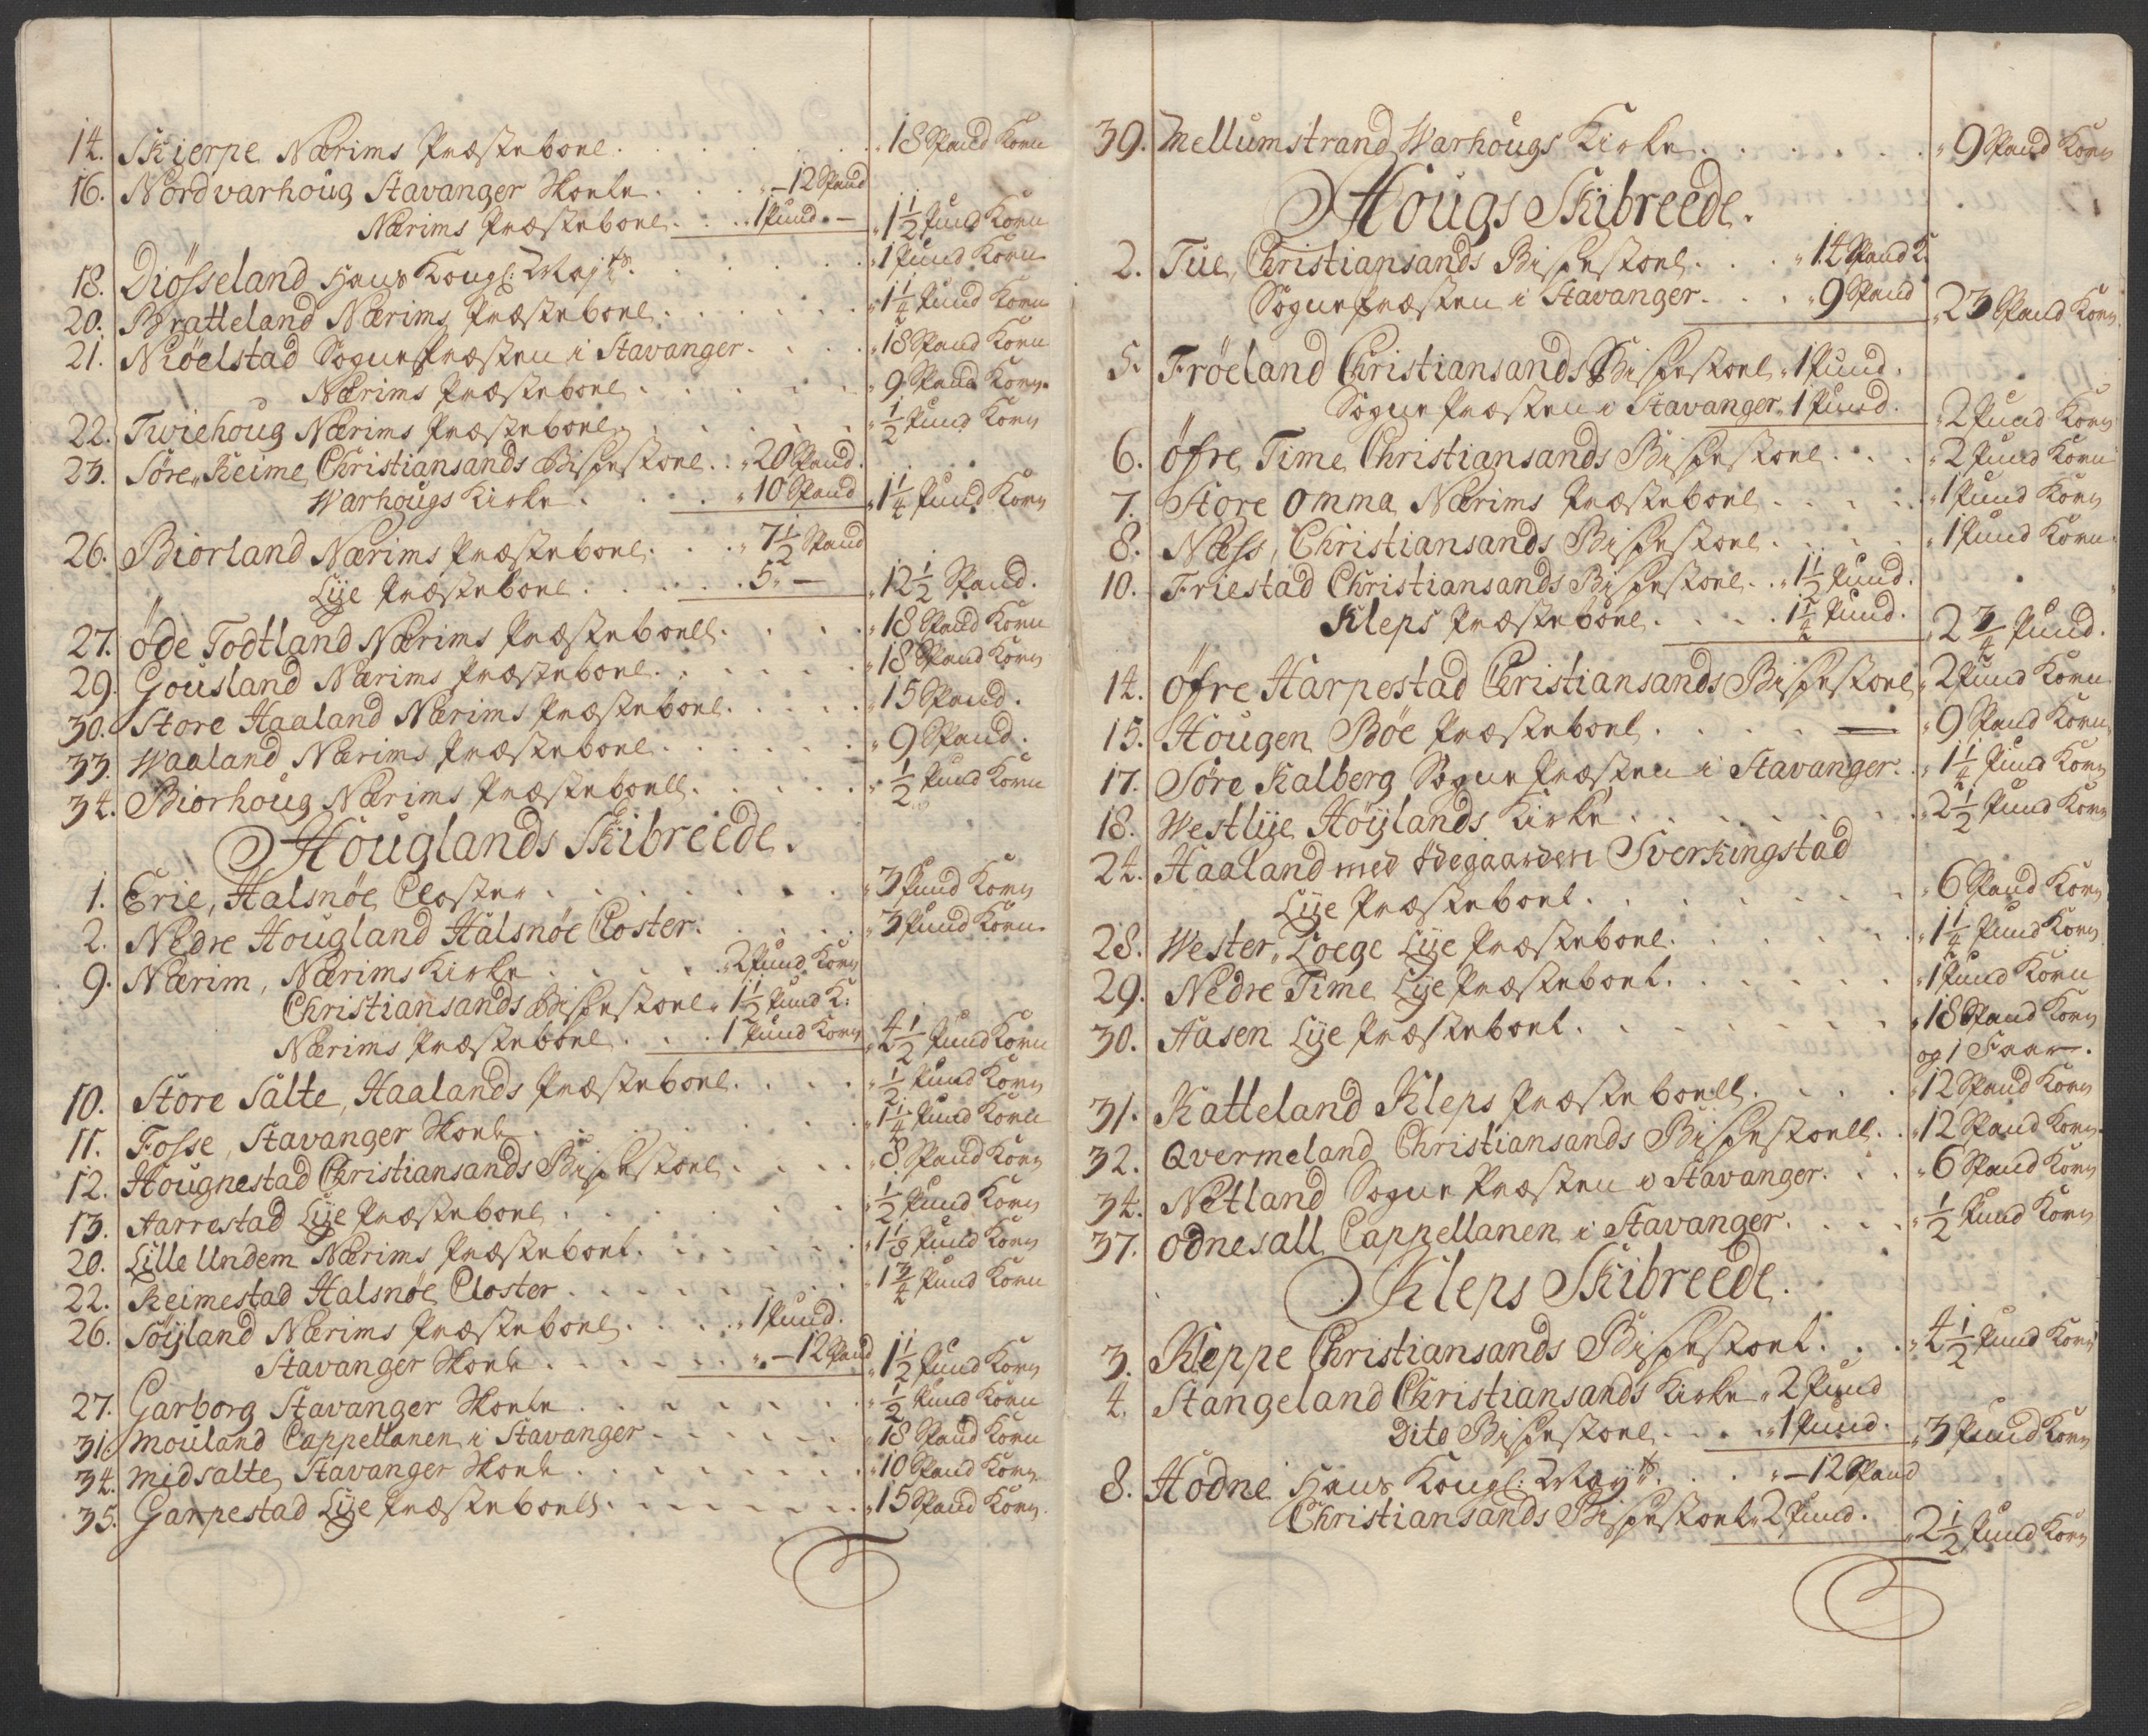 14. Skierpe Nærims Præsteboel . . . 18 Spand Korn
16. Nordvarhoug Stavanger Skoele . . . — 12 Spand
Nærims Præsteboel . . . 1 Pund. — 1 1/2 Pund Korn
18. Diösseland Hans Kongl: Mayts. . . . 1 Pund Korn
20. Bratteland Nærims Præsteboel . . . 1 1/4 Pund Korn
21. Niöelstad Sognepræsten i Stavanger . . . 18 Spand Korn
Nærims Præsteboel . . . 9 Spand Korn
22. Twiehoug Nærims Præsteboel . . . 1/2 Pund Korn
23. Söre Reime, Christiansands Bispestoel . . 20 Spand.
Warhougs Kirke . . . 10 Spand 1 1/4 Pund Korn
26. Biorland Nærims Præsteboel . . . 7 1/2 Spand
Lye Præsteboel . . . 5. — 12 1/2 Spand.
27. öde Todtland Nærims Præsteboell . . . 18 Spand Korn
29. Gousland Nærims Præsteboel . . . 18 Spand Korn
30. Store Haaland Nærims Præsteboel . . . 15 Spand.
33. Waaland Nærims Præsteboel . . . 9 Spand.
34. Biorhoug Nærims Præsteboell . . . 1/2 Pund Korn
Houglands Skibreede.
1. Erie, Halsnöe Closter . . . 3 Pund Korn
2. Nedre Hougland Halsnöe Closter . . . 3 Pund Korn.
9. Nærim, Nærims Kirke . . . 2 Pund Korn
Christiansands Bispestoel 1 1/2 Pund K:
Nærims Præsteboel . . . 1 Pund Korn 4 1/2 Pund Korn
10. Store Salte, Haalands Præsteboel . . . 1/2 Pund Korn
11. Fosse, Stavanger Skoele . . . 1 1/4 Pund Korn
12. Hougnestad Christiansands Bispestoel . . . 8 Spand Korn
13. Aarrestad Lye Præsteboel . . . 1/2 Pund Korn
20. Lille Undem Nærims Præsteboel . . . 1 1/8 Pund Korn
22. Reimestad Halsnöe Closter . . . 1 3/4 Pund Korn
26. Söyland Nærims Præsteboel . . . 1 Pund.
Stavanger Skoele . . . — 12 Spand 1 1/2 Pund Korn
27. Garborg Stavanger Skoele . . . 1/2 Pund Korn
31. Mouland Cappellanen i Stavanger . . . 18 Spand Korn
34. Midsalte, Stavanger Skoele . . . 10 Spand Korn
35. Garpestad Lye Præsteboell . . . 15 Spand Korn.
39. Mellumstrand Warhougs Kirke . . . 9 Spand Korn
Hougs Skibreede.
2. Tue, Christiansands Bispestoel . . . 14 Spand K.
Sognepræsten i Stavanger . . . 9 Spand 23 Spand Korn.
5. Fröeland Christiansands Bispestoel 1 Pund.
Sognepræsten i Stavanger 1 Pund. 2 Pund Korn
6. öfre Time Christiansands Bispestoel . . . 2 Pund Korn
7. Store Omma Nærims Præsteboel . . . 1 Pund Korn
8. Næss, Christiansands Bispestoel . . . 1 Pund Korn
10. Friestad Christiansands Bispestoel . . 1 1/2 Pund.
Kleps Præsteboel . . . 1 1/4 Pund. 2 3/4 Pund.
14. öfre Harpestad Christiansands Bispestoel 2 Pund Korn
15. Hougen Böe Præsteboel . . . — 9 Spand Korn
17. Söre Kalberg Sognepræsten i Stavanger . . 1 1/4 Pund Korn
18. Westlye Höylands Kirke . . . 2 1/2 Pund Korn
24. Haaland med Ödegaarden Sverkingstad
Lye Præsteboel . . . 6 Spand Korn
28. Wester Loege Lye Præsteboel . . . 1 1/4 Pund Korn
29. Nedre Time Lye Præsteboel . . . 1 Pund Korn
30. Aasen Lye Præsteboel . . . 18 Spand Korn
og 1 Faar.
31. Katteland Kleps Præsteboell . . . 12 Spand Korn
32. Qvermeland Christiansands Bispestoell . . 12 Spand Korn
34. Netland Sognepræsten i Stavanger . . . 6 Spand Korn
37. Odnesall Cappellanen i Stavanger . . . 1/2 Pund Korn
Kleps Skibreede.
3. Kleppe Christiansands Bispestoel . . . 4 1/2 Pund Korn
4. Stangeland Christiansands Kirke 2 Pund
Dito Bispestoel . . . 1 Pund. 3 Pund Korn
8. Hodne Hans Kongl: Mayts. . . . — 12 Spand
Christiansands Bispestoel 2 Pund. 2 1/2 Pund Korn